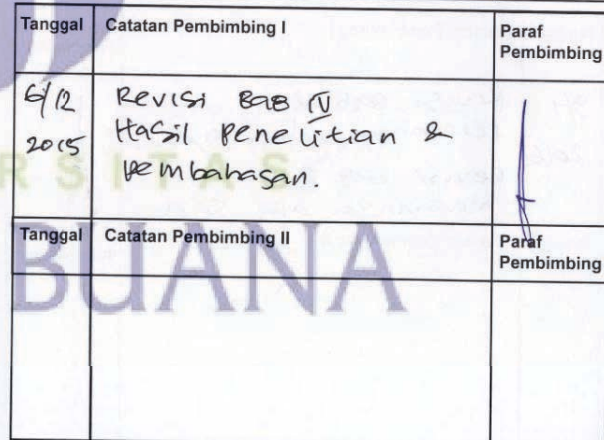 Tanggal Catatan Pembimbing I Paraf Pembimbing
6/12 Revisi BAB IV
2015 Hasil Penelitian &
Pembahasan.
R S I T A S
Tanggal Catatan Pembimbing II Paraf Pembimbing
BUANA